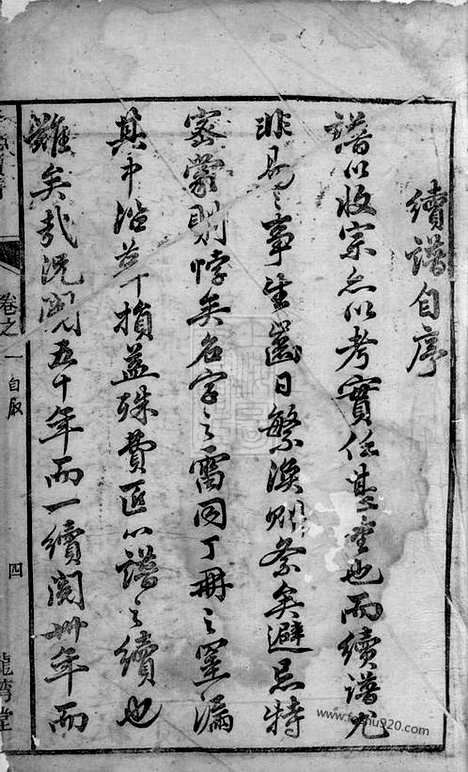 續譜自序
譜以收宗亦以考實任甚重也而續譜尤
非易易事生齒日繁渙則紊矣避忌特
密蒙則悖矣名字之雷同丁冊之罣漏
其中沿革損益殊費匠心譜之續也
難矣哉況閱五十年而一續閱卅年而
卷之一
自敘
四
www.fozhu920.com